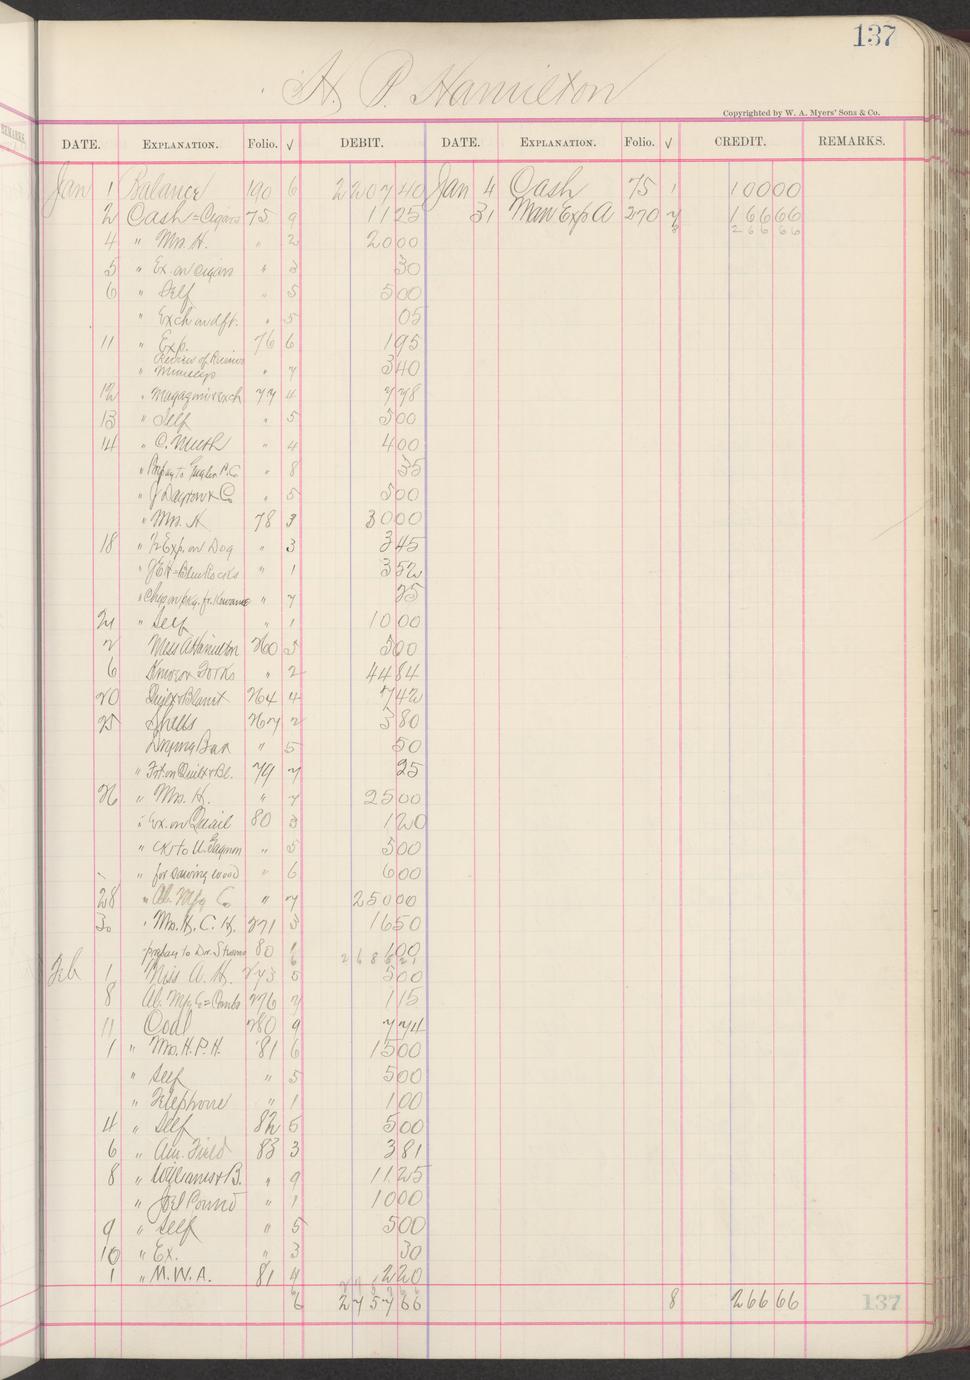 137
H. P. Hamilton
Copyrighted by W. A. Myers' Sons & Co.
DATE. EXPLANATION. Folio. √ DEBIT. DATE. EXPLANATION. Folio. √ CREDIT. REMARKS.
Jan 1 Balance 190 6 2207 40 Jan 4 Cash 75 1 100 00
2 Cash = Cigars 75 9 11 25 31 Man Exp A 270 7 166 66
4 " Mrs. H. " 2 20 00 8 266 66
5 " Ex. on Cigars " 3 30
6 " Self " 5 5 00
" Exch on dft. " 5 05
11 " Exp. 76 6 1 95
" Review of Reviews Munseys " 7 3 40
12 " Magazine & exch 77 4 7 78
13 " Self " 5 5 00
14 " C. Muth " 4 4 00
" to P. Co " 8 35
" J Dayton & Co " 5 5 00
" Mrs. H 78 3 30 00
18 " Exp. on Dog " 3 3 45
" " 1 3 52
" " 7 25
21 " Self " 1 10 00
2 Miss A Hamilton 260 5 5 00
6 Forks " 2 44 84
20 Quilt & Blanket 264 4 7 42
25 Shells 267 2 3 80
Drying Bar " 5 50
" Frt. on Quilt & Bl. 79 7 25
26 " Mrs. H. " 7 25 00
" Ex. on Quail 80 3 1 20
" to U. Gagnon " 5 5 00
" for sawing wood " 6 6 00
28 " Al. Mfg Co " 7 250 00
30 " Mrs. H. C. H. 271 3 16 50
" prepay to Dr. 80 1 1 00
6 2686 21
Feb 1 Miss A. H. 273 5 5 00
8 Al. Mfg Co = Combs 276 7 1 15
11 Coal 280 9 7 74
1 " Mrs. H. P. H. 81 6 15 00
" Self " 5 5 00
" Telephone " 1 1 00
4 " Self 82 5 5 00
6 " Am. Field 83 3 3 81
8 " Williams & B. " 9 11 25
" Joel Pound " 1 10 00
9 " Self " 5 5 00
10 " Ex. " 3 30
1 " M. W. A. 81 4 2 20
6 2757 66 8 266 66 137